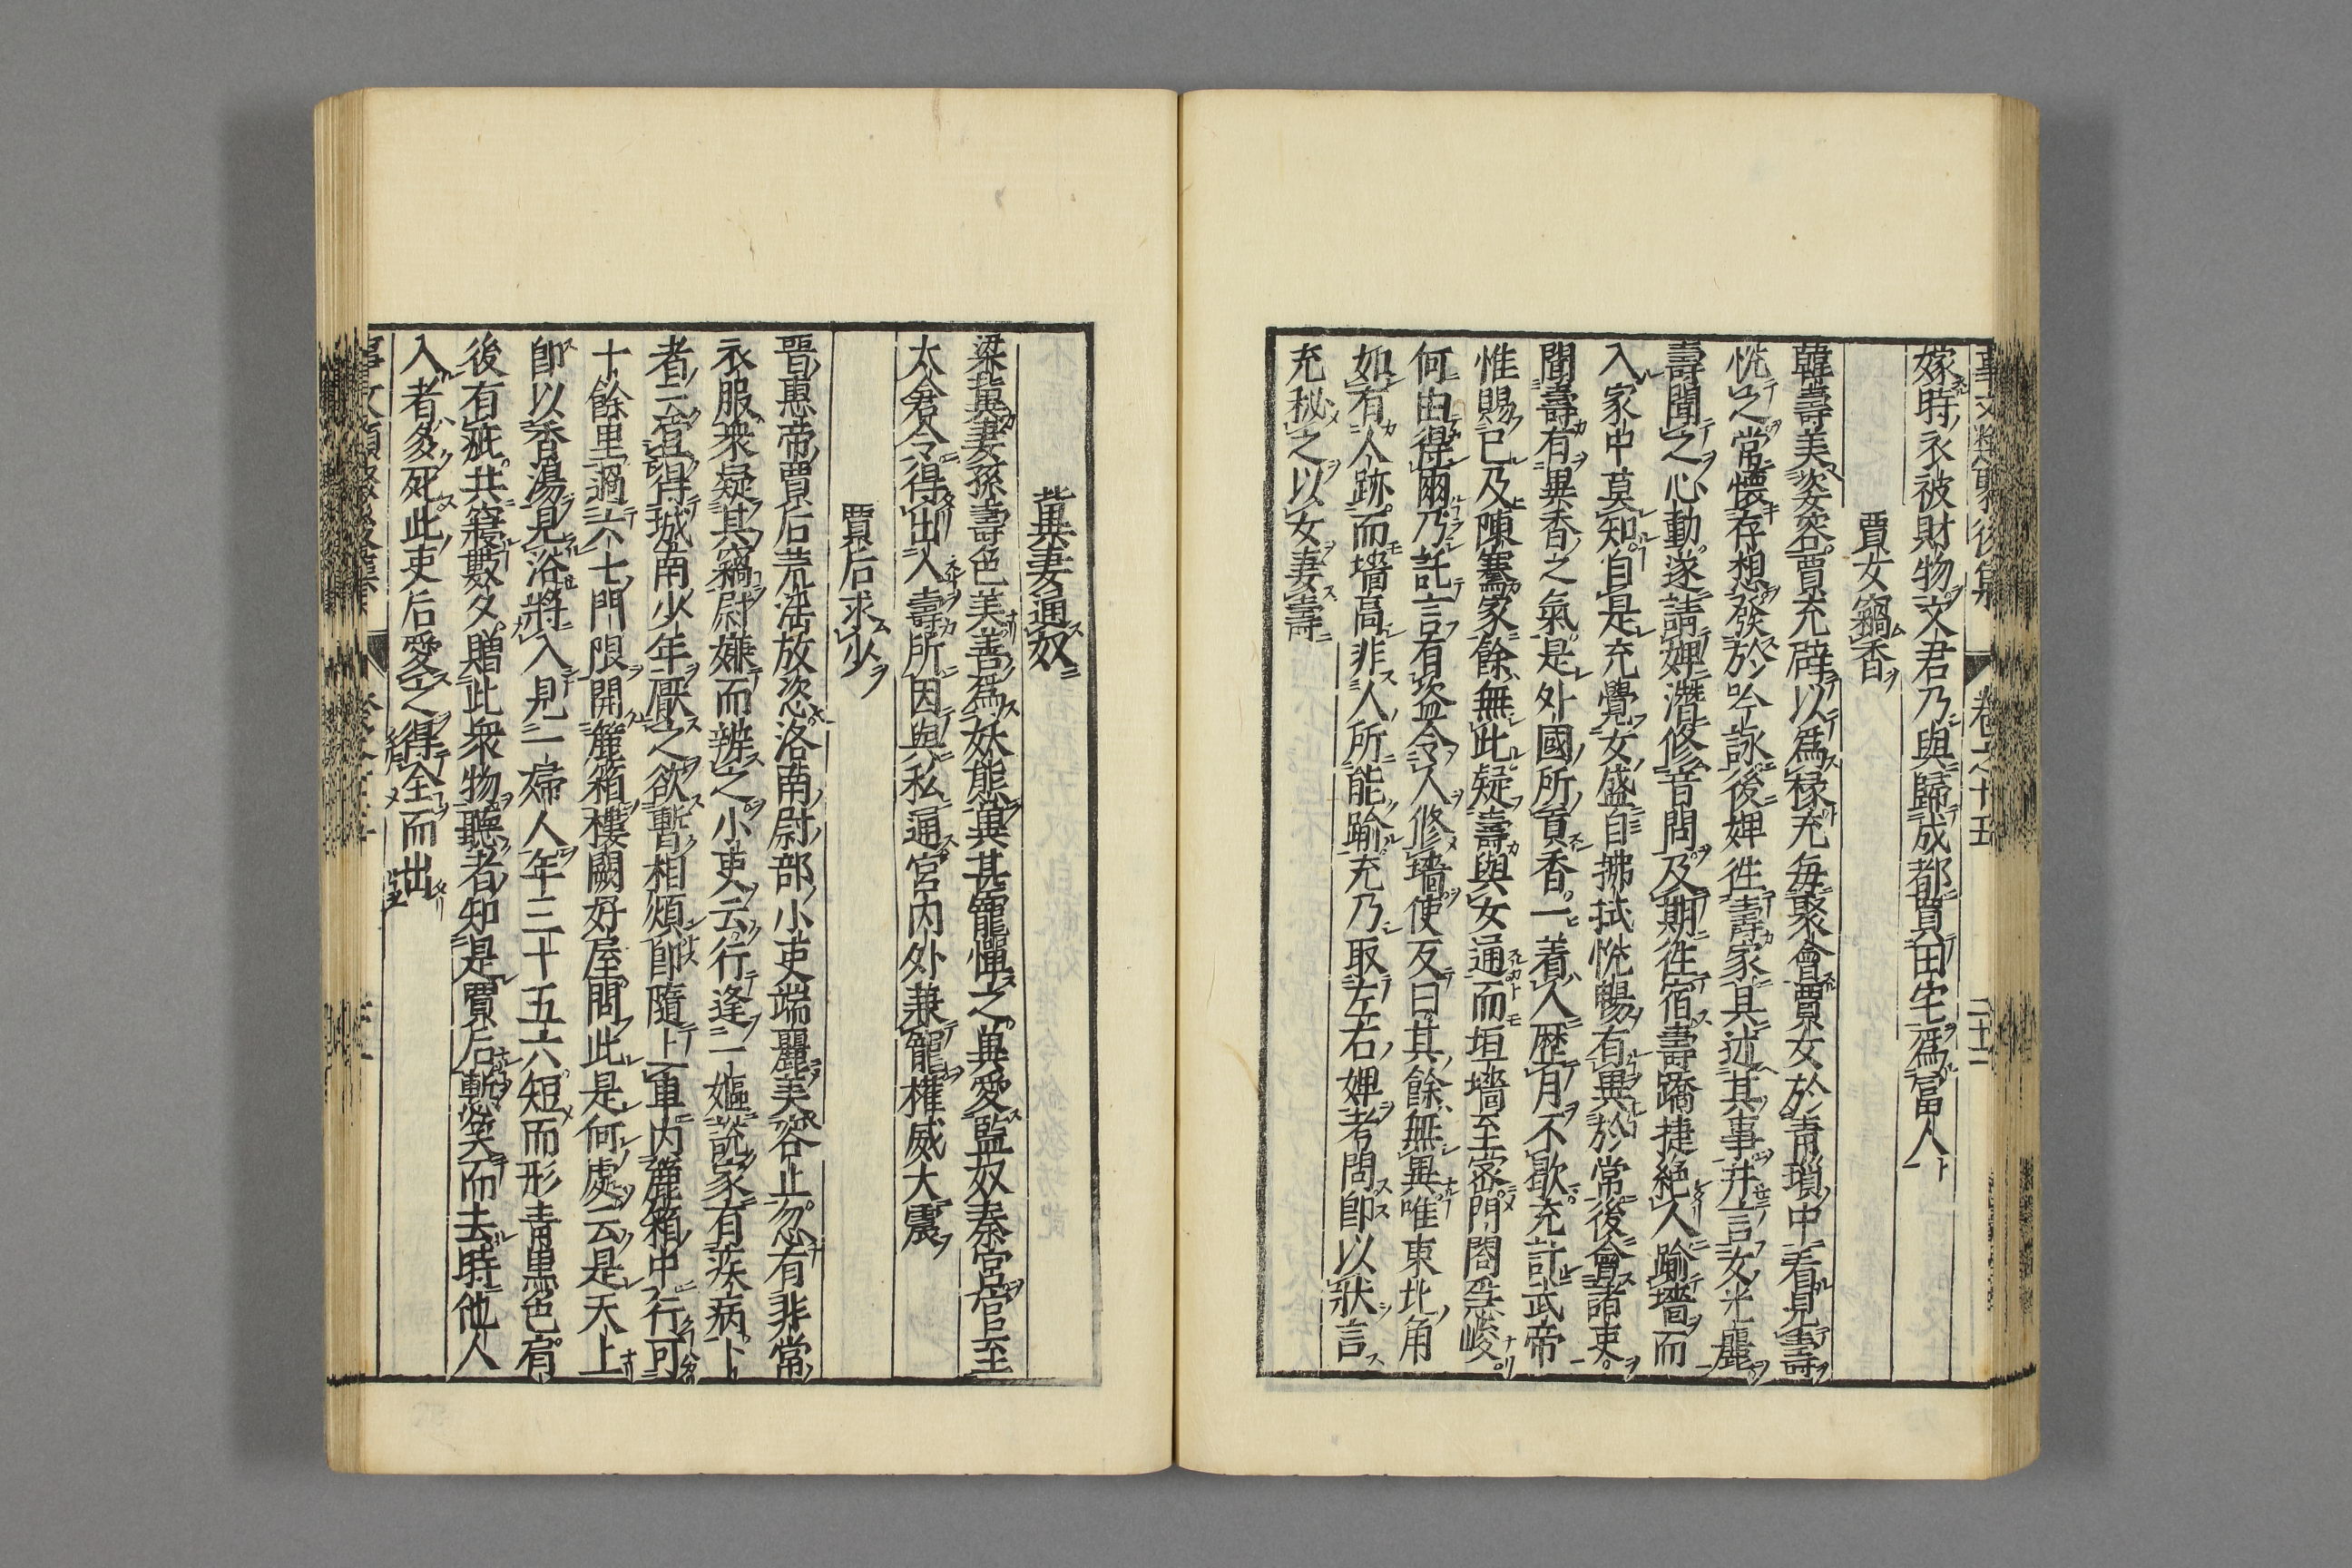 事文類聚後集 卷之十五 二十二
嫁時衣被財物文君乃與歸成都買田宅爲富人
賈女竊香
韓壽美姿容賈充辟以爲椽充每聚會賈女於青瑣中看見壽
恱之常懷存想發於吟詠後婢徃壽家具述其事并言女光麗
壽聞之心動遂請婢潛修音問及期徃宿壽蹻捷絶人踰墻而
入家中莫知自是充覺女盛自拂拭恱暢有異於常後會諸吏
聞壽有異香之氣是外國所貢香一着人歷月不歇充計武帝
惟賜已及陳騫家餘無此疑壽與女通而垣墻至宻門閤急峻
何由得爾乃託言有盗令人修墻使反曰其餘無異唯東北角
如有人跡而墻高非人所能踰充乃取左右婢考問卽以狀言
充秘之以女妻壽
冀妻通奴
梁冀妻孫壽色美善爲妖態冀甚寵憚之冀愛監奴秦宮官至
太倉令得出入壽所因與私通宮内外兼寵權威大震
賈后求少
晋惠帝賈后荒淫放恣洛南尉部小吏端麗美容止忽有非常
衣服衆疑其竊尉嫌而辨之小吏云行逢一嫗說家有疾病卜
者云宜得城南少年厭之欲暫相煩卽隨上車内簏箱中行可
十餘里過六七門限開簏箱樓闕好屋問此是何處云是天上
卽以香湯見浴將入見一婦人年三十五六短而形青黒色眉
後有疵共寢數夕贈此衆物聽者知是賈后慙笑而去時他人
入者多死此吏后愛之得全而出